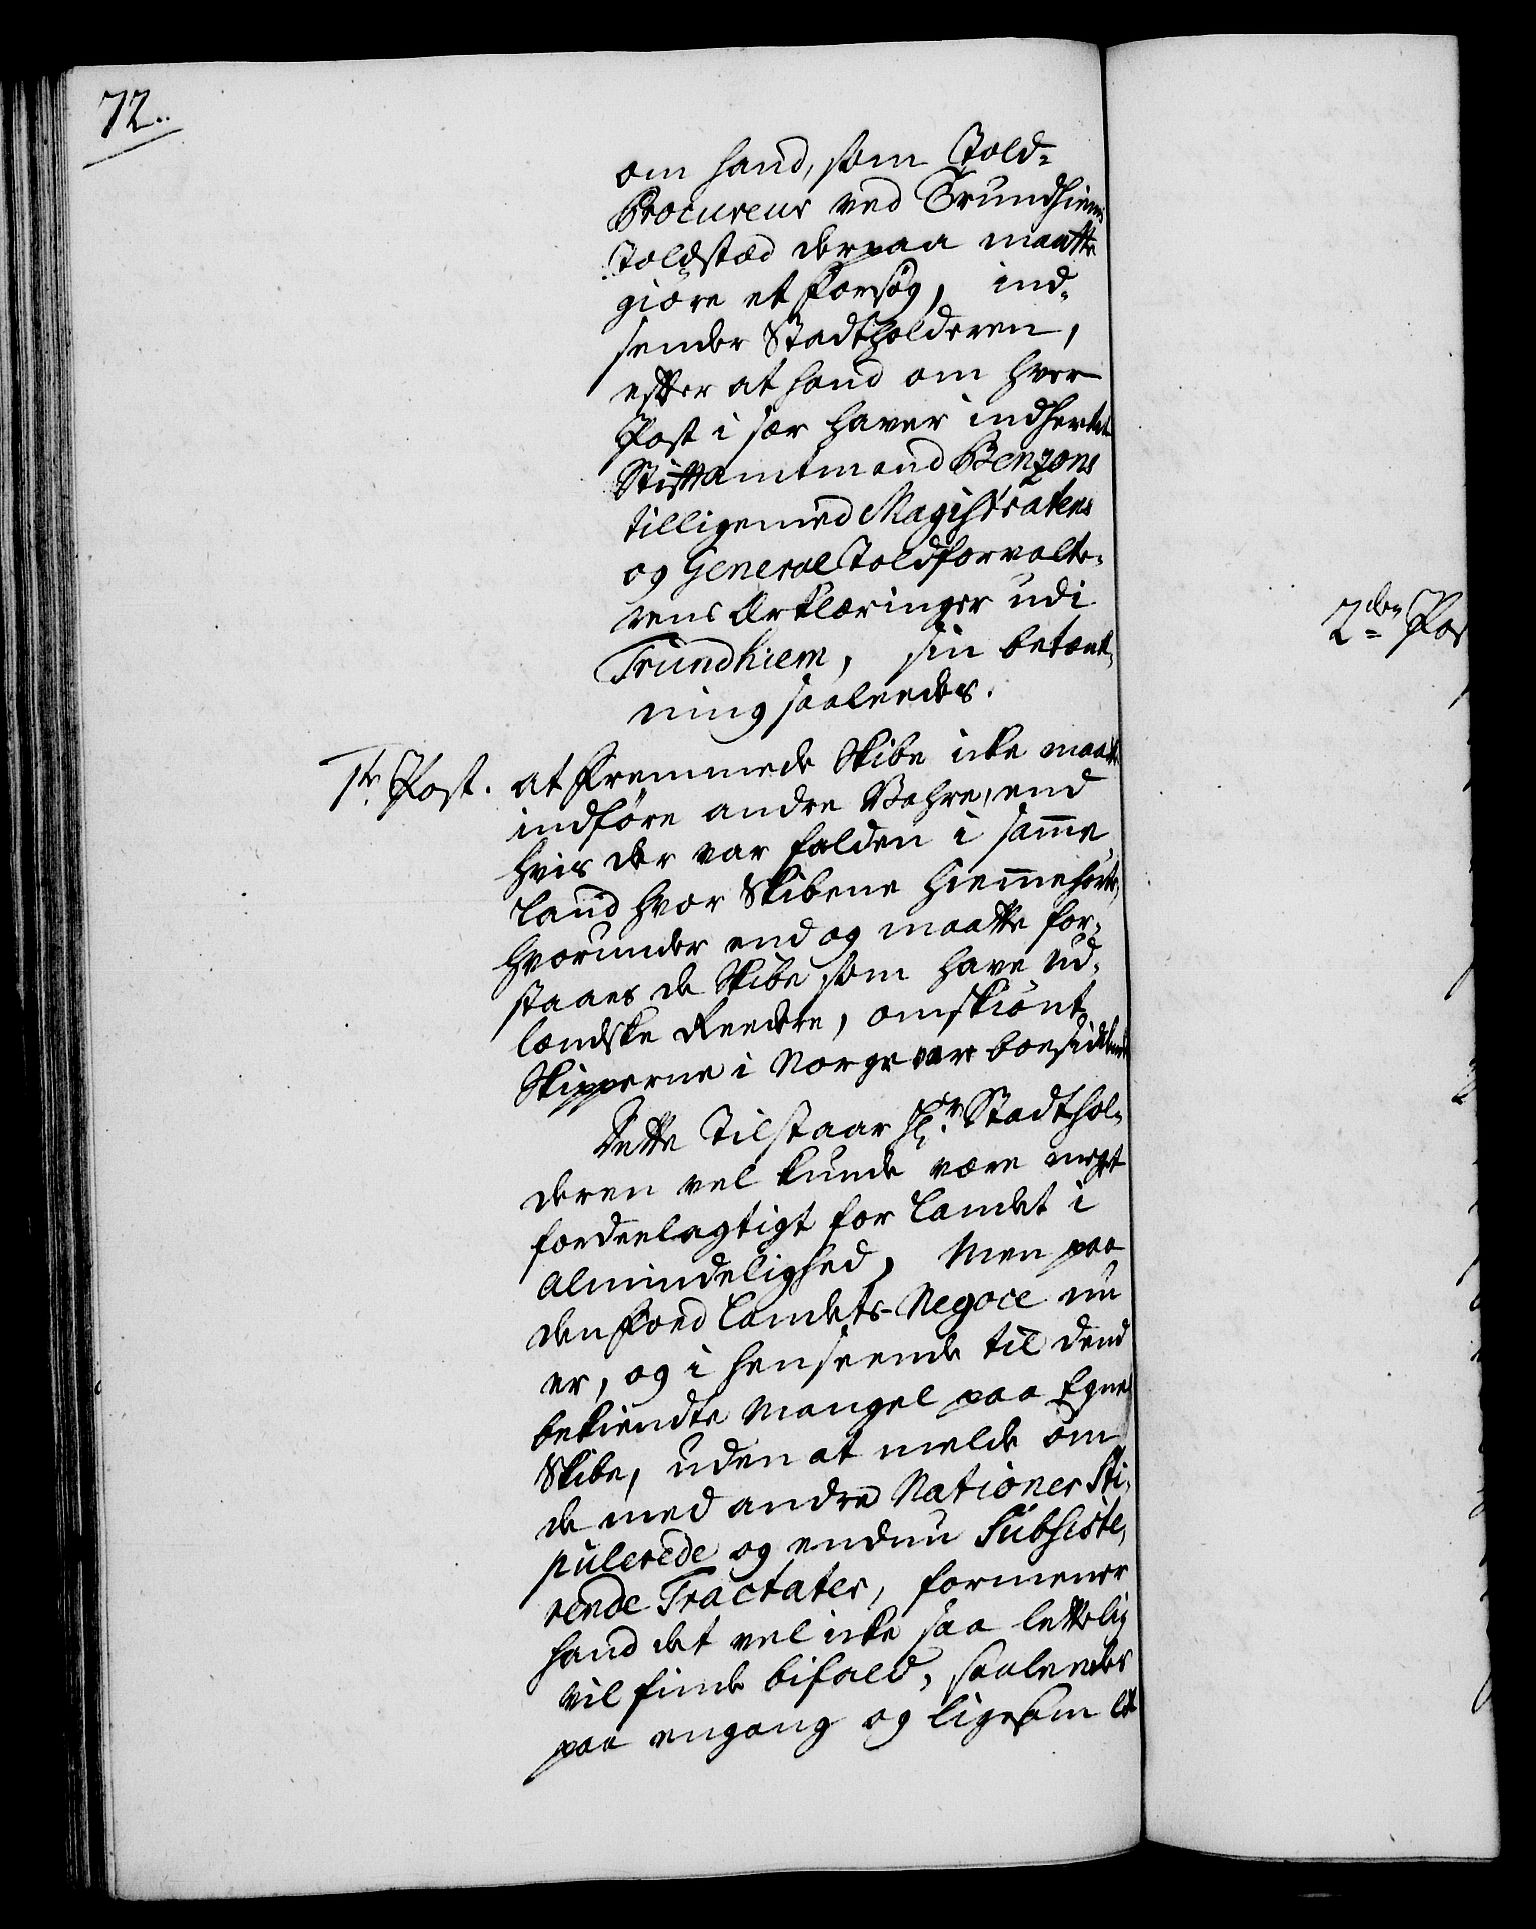 72.
om hand, som Told-
Procureur ved Trundhiems
Toldsted derpaa maatte
giøre et Forsøg, ind-
sender Stadtholderen,
efter at hand om hver
Post i sær haver indhentet
Stiftamtmand Benzons
tilligemed Magistratens
og General Toldforvalte-
rens Erklæringer udi
Trundhiem, sin betænk-
ning saaleedes.
1te Post. at fremmede Skibe icke maatte
indføre andre Vahre, end
hvis der var falden i samme
Land hvor Skibene hiemmehørte,
hvorunder end og maatte for-
staaes de Skibe som have ud-
landske Reedere, omskiønt
Skipperne i Norge vare boesiddende
Dette tilstaar Hr. Stadthol-
deren vel kunde være meget
fordeelagtigt for Landet i
Almindelighed, Men paa
den Foed Landets Negoce nu
er, og i henseende til dend
bekiendte Mangel paa Egne
Skibe, uden at melde om
de med andre Nationer Sti-
pulerede og endnu Subsiste-
rende Tractater, formener
hand det vel icke saa lettelig
vil finde bifald, saaleedes
paa engang og ligesom
2den Pos